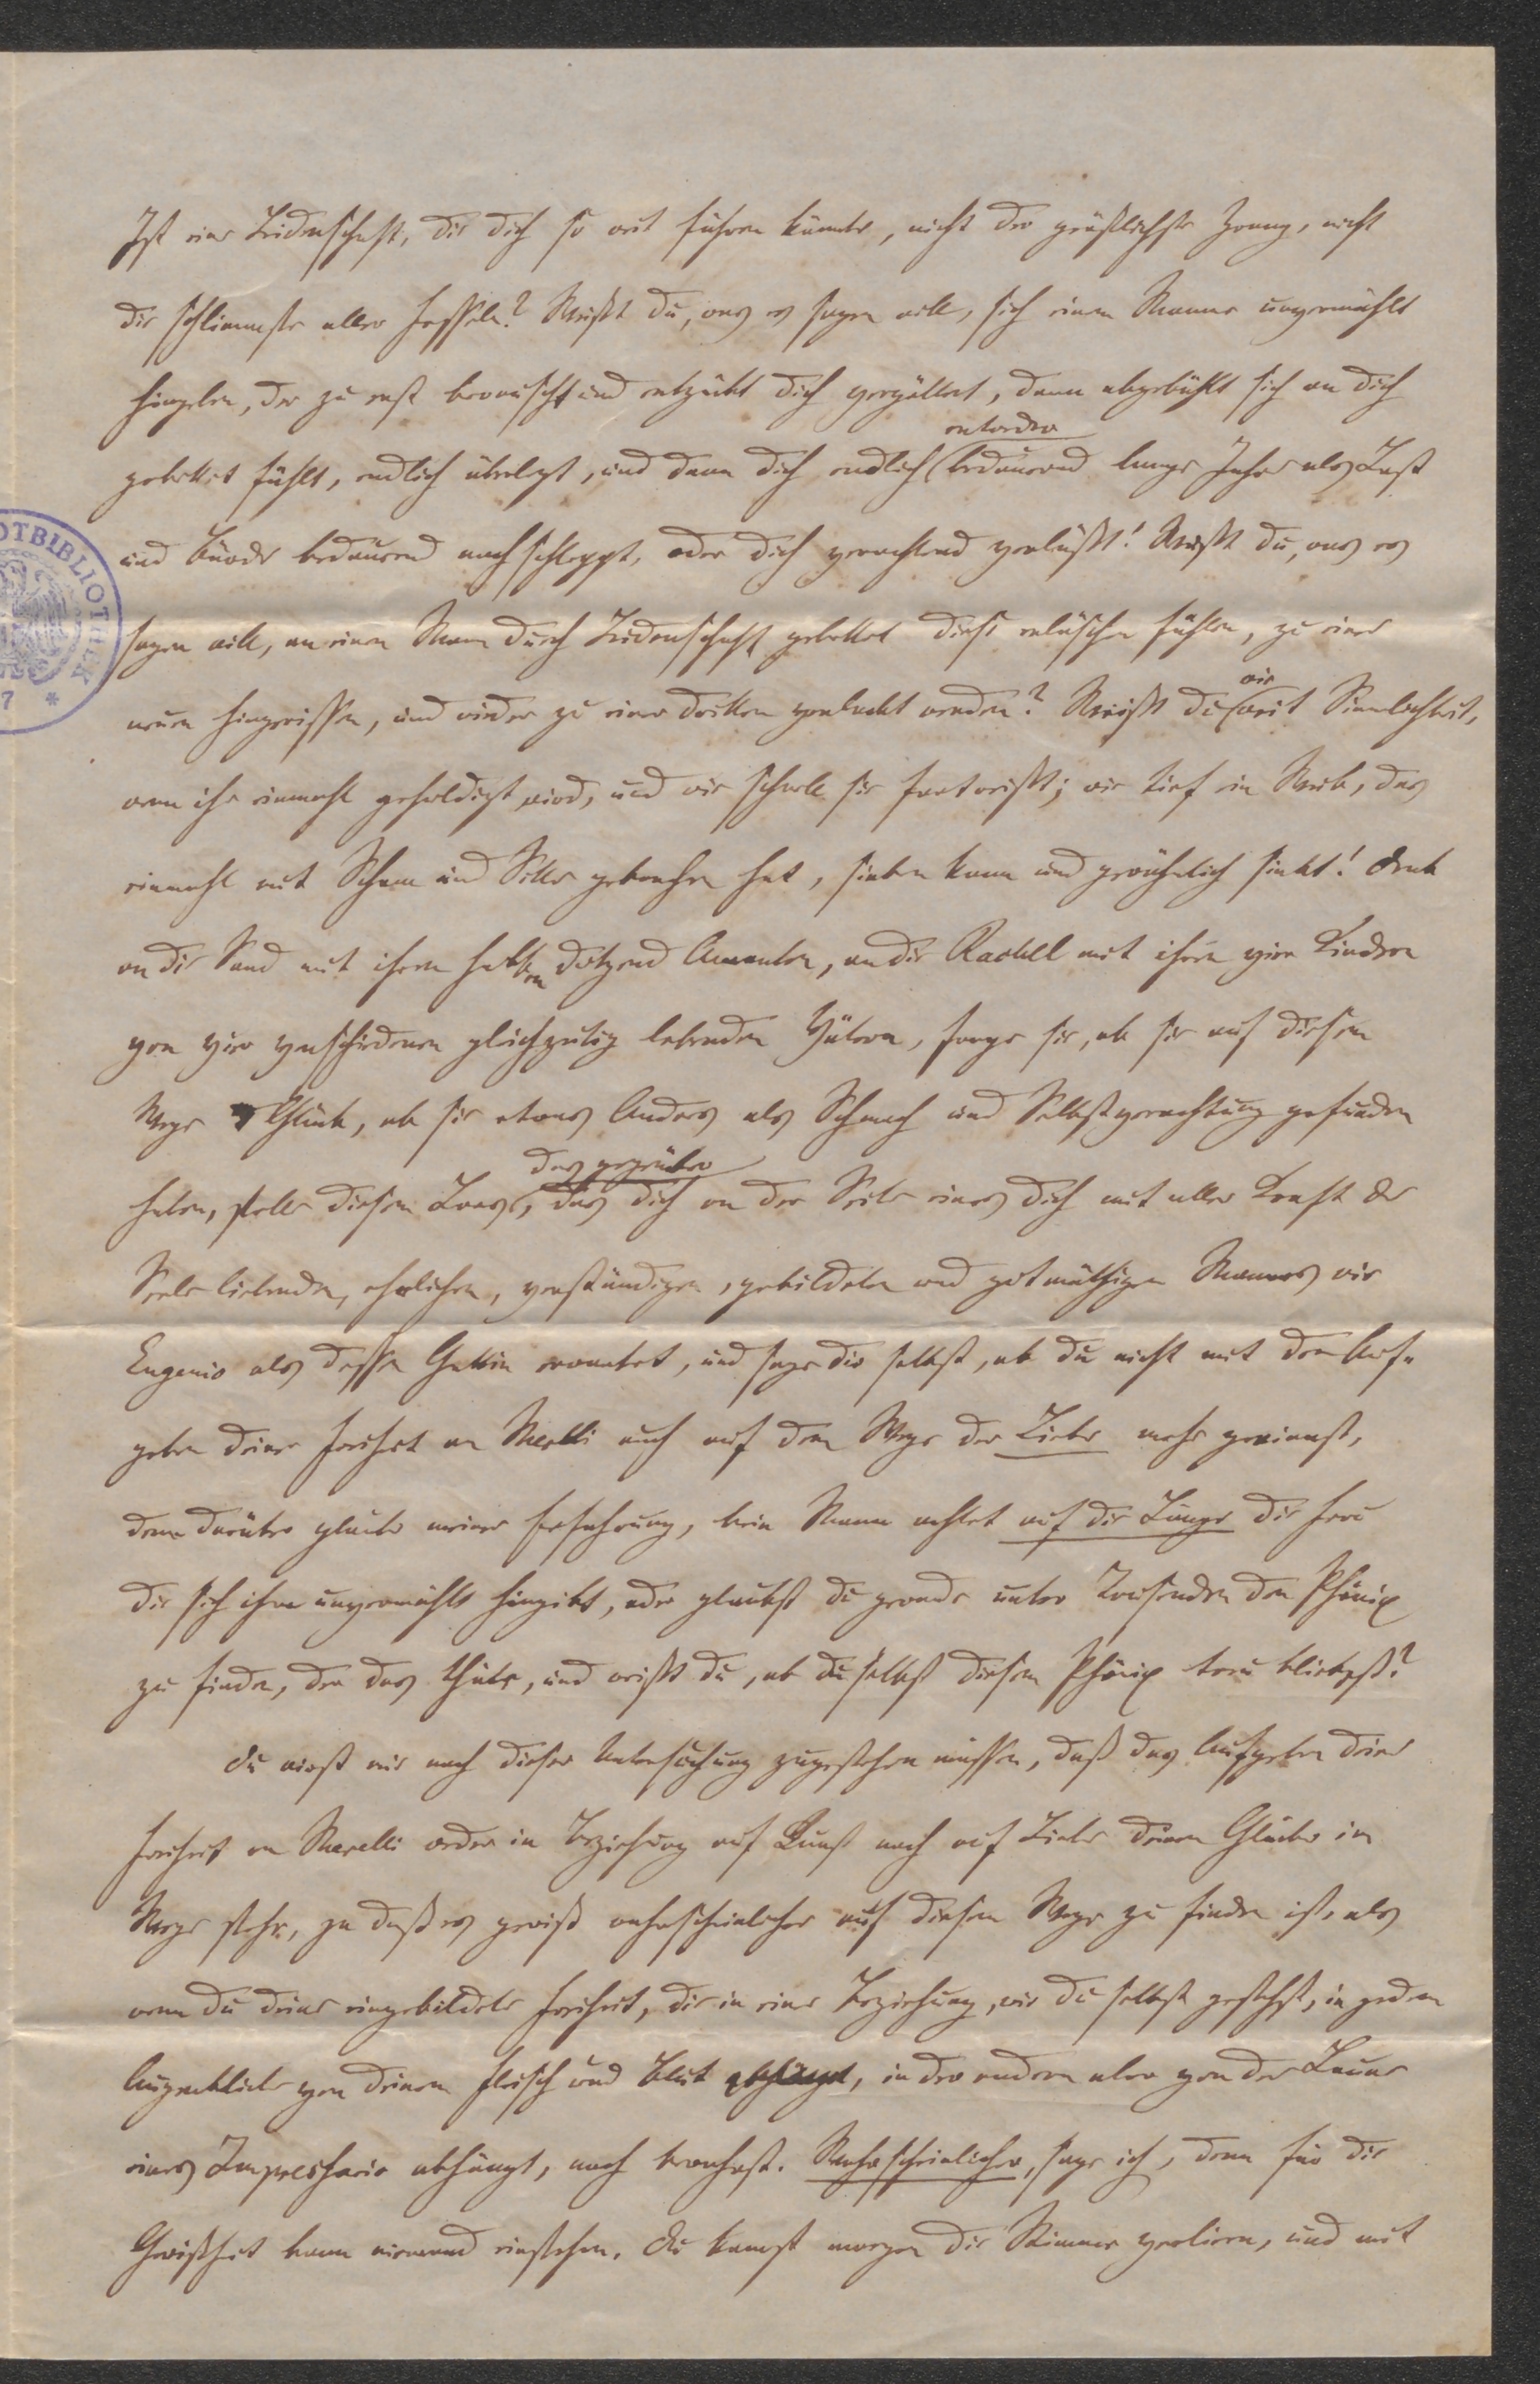 Ist eine Leidenschaft, die dich so weit führen könnte, nicht der gräßlichste Zwang, nicht
die schlimmste aller Fesseln? Weißt du, was es sagen will, sich einem Manne unvermählt
hingeben, der zu erst berauscht und entzückt dich vergöttert, dann abgekühlt sich an dich
entweder
gekettet fühlt, endlich überlegt, und dann dich endlich bedauernd lange Jahre als Last
und Bürde bedauernd nachschleppt, oder dich verachtend verläßt! Weißt du, was es
sagen will, an einen Mann durch Leidenschaft gekettet diese erlöschen fühlen, zu einer
wie
neuen hingerissen, und wieder zu einer dritten verlockt werden? Weißt du weit Sinnlichkeit,
wenn ihr einmahl gehuldigt wird, und wie schnell sie fortreißt; wie tief ein Weib, das
einmahl mit Scham und Sitte gebrochen hat, sinken kann und gewöhnlich sinkt! Denk
an die Sand mit ihrem halben Dutzend Amanten, an die Rachel mit ihren vier Kindern
von vier verschiedenen gleichzeitig lebenden Vätern, frage sie, ob sie auf diesem
Wege Glück, ob sie etwas Anders als Schmach und Selbstverachtung gefunden
das gegenüber
haben, stelle diesem Loos, das dich an der Seite eines dich mit aller Kraft der
Seele liebenden, ehrlichen, verständigen, gebildeten und gutmüthigen Mannes wie
Eugenio als dessen Gattin erwartet, und sage dir selbst, ob du nicht mit dem Auf-
geben deiner Freiheit an Merelli auch auf dem Wege der Liebe mehr gewinnst,
denn darüber glaube meiner Erfahrung, kein Mann achtet auf die Länge die Frau
die sich ihm unvermählt hingibt, oder glaubst du gerade unter Tausenden den Phönix
zu finden, der das thäte, und weißt du, ob du selbst diesem Phönix treu bliebest?
Du wirst mir nach dieser Untersuchung zugestehen müssen, daß das Aufgeben deiner
Freiheit an Merelli weder in Beziehung auf Kunst noch auf Liebe deinem Glücke im
Wege stehe, ja daß es gewiß wahrscheinlicher auf diesem Wege zu finden ist, als
wenn du deine eingebildete Freiheit, die in einer Beziehung, wie du selbst gestehst, in jedem
Augenblicke von deinem Fleisch und Blut abhängt, in der andern aber von der Laune
eines Impressario abhängt, noch bewahrst. Wahrscheinlicher, sage ich, denn für die
Gewißheit kann niemand einstehen. Du kannst morgen die Stimme verlieren, und mit
OTBIBLIOTHEK
7 *